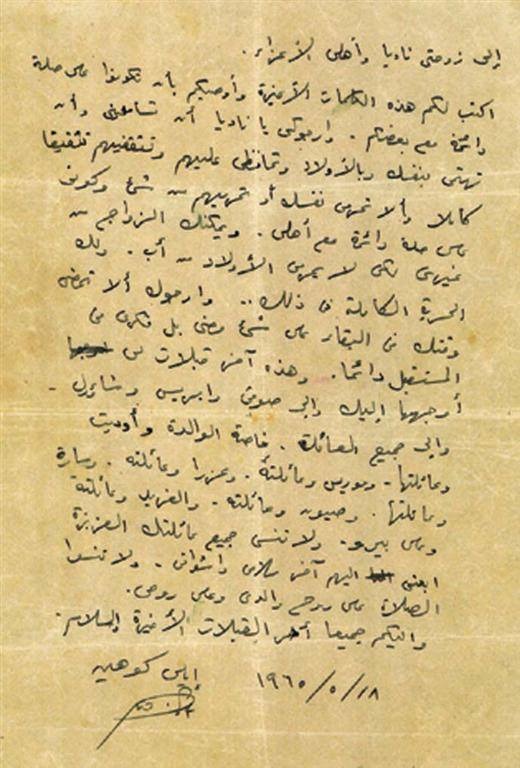 إلى زوجتي ناديا وأهلي الأعزاء.
اكتب لكم هذه الكلمات الأخيرة وأوصيكم بأن تكونوا على صلة
دائمة مع بعضكم. وارجوكي يا ناديا أن تسامحيني وأن
تهتمي بنفسك وبالأولاد وتحافظي عليهم وتثقفيهم تثقيفا
كاملا وألا تحرمي نفسك أو تحرميهم من شيء وكوني
على صلة دائمة مع أهلي. ويمكنك الزواج من
غيري لكي لا يحرم الأولاد من أب. ولك
الحرية الكاملة في ذلك.. وارجوك ألا تمضي
وقتك في البكاء على شيء مضى بل فكري في
المستقبل دائما. وهذه آخر قبلات لي
أوجهها إليك والى صوفي وايريس وشاؤول.
والى جميع العائلة. خاصة الوالدة وأوديت
وعائلتها. وموريس وعائلته. وعزرا وعائلته. وسارة
وعائلتها. وصيون وعائلته. والفريد وعائلته
ولا تنسي جميع عائلتك العزيزة
ابعثي اليهم آخر سلامي واشواقي. ولا تنسوا
الصلاة على روح والدي وعلى روحي.
واليكم جميعا أخر القبلات الأخيرة والسلام.
إيلي كوهين
١٩٦٥/٥/١٨